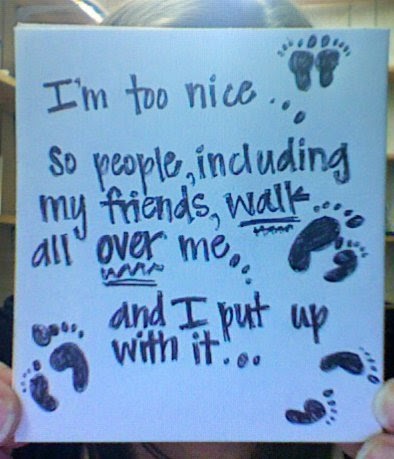 I'm too nice...
So people, including
my friends, walk
all over me...
and I put up
with it...